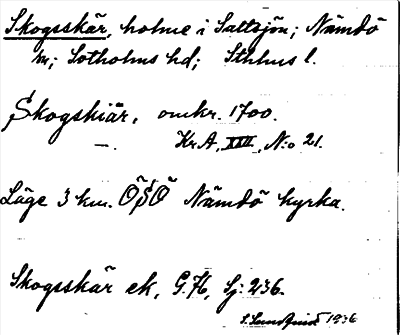 Skogsskär, holme i Saltsjön; Nämdö
sn; Sotholms hd; Sthlms l.
Skogskiär, omkr. 1700.
Kr. A, XXII, N:o 21.
Läge 3 km. ÖSÖ Nämdö kyrka.
Skogsskär ek, G.K, Sj: 236.
S. Lundquist 1936